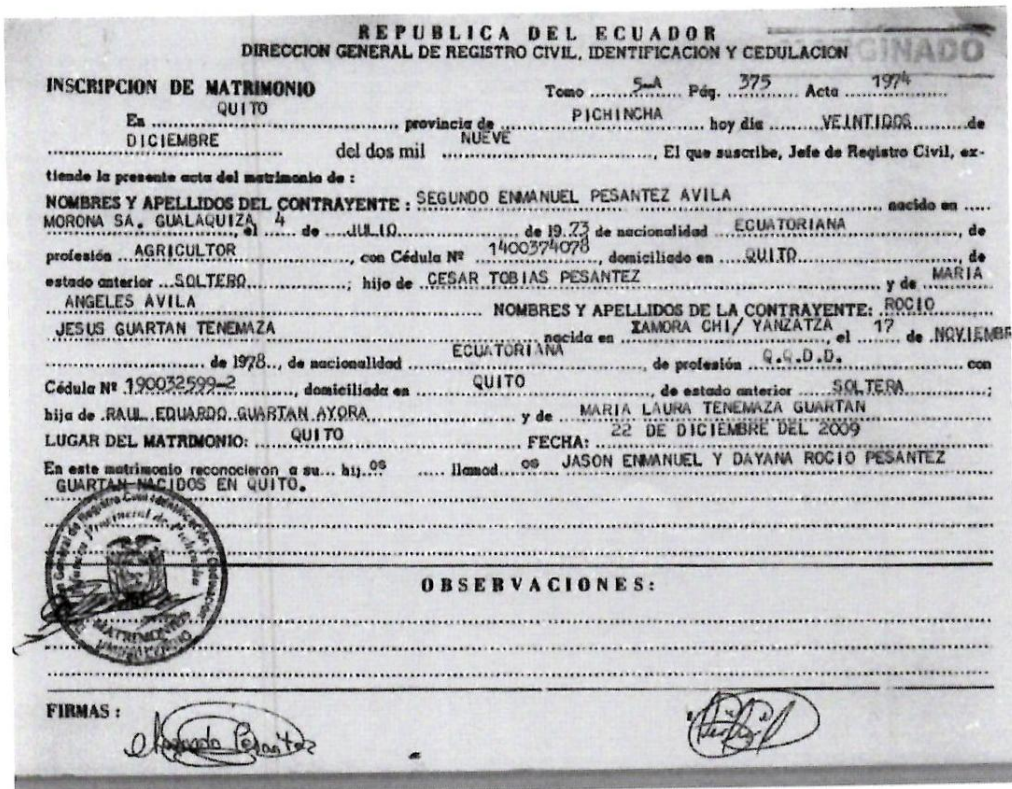 REPUBLICA DEL ECUADOR
DIRECCION GENERAL DE REGISTRO CIVIL, IDENTIFICACION Y CEDULACION
MARGINADO
INSCRIPCION DE MATRIMONIO Tomo ..... 5-A Pág. 375 Acta 1974
En QUITO provincia de PICHINCHA hoy dia VEINTIDOS de
DICIEMBRE del dos mil NUEVE, El que suscribe, Jefe de Registro Civil, ex-
tiende la presente acta del matrimonio de :
NOMBRES Y APELLIDOS DEL CONTRAYENTE : SEGUNDO ENMANUEL PESANTEZ AVILA nacido en
MORONA SA. GUALAQUIZA, el 4 de JULIO de 19.73 de nacionalidad ECUATORIANA, de
profesión AGRICULTOR, con Cédula Nº 1400374078, domiciliado en QUITO, de
estado anterior SOLTERO; hijo de CESAR TOBIAS PESANTEZ y de MARIA
ANGELES AVILA NOMBRES Y APELLIDOS DE LA CONTRAYENTE: ROCIO
JESUS GUARTAN TENEMAZA nacida en ZAMORA CHI/ YANZATZA, el 17 de NOVIEMBR
de 1978, de nacionalidad ECUATORIANA de profesión Q.Q.D.D. con
Cédula Nº 190032599-2, domiciliada en QUITO de estado anterior SOLTERA;
hija de RAUL EDUARDO GUARTAN AYORA y de MARIA LAURA TENEMAZA GUARTAN
LUGAR DEL MATRIMONIO: QUITO FECHA: 22 DE DICIEMBRE DEL 2009
En este matrimonio reconocieron a su... hij os llamad os JASON ENMANUEL Y DAYANA ROCIO PESANTEZ
GUARTAN NACIDOS EN QUITO.
MATRIMONIOS
OBSERVACIONES:
FIRMAS :